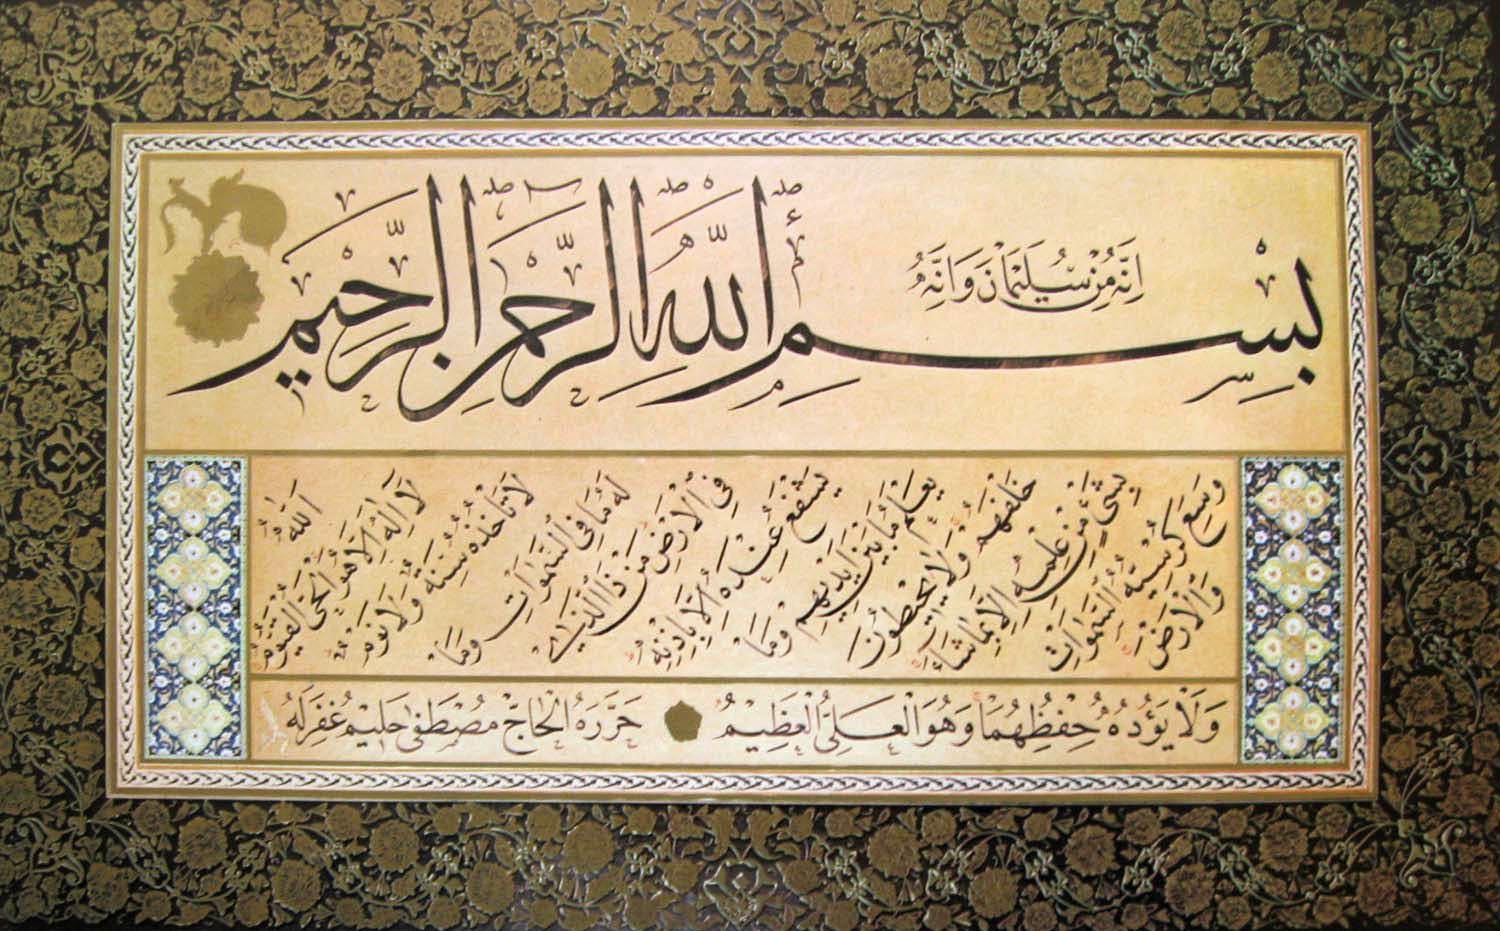 اِنَّهُ مِنْ سُلَيْمٰنَ وَاِنَّهُ
بِسْمِ اللّٰهِ الرَّحْمٰنِ الرَّحِيْمِ
اَللّٰهُ
لَا اِلٰهَ اِلَّا هُوَ الْحَىُّ الْقَيُّومُ
لَا تَأْخُذُهُ سِنَةٌ وَلَا نَوْمٌ
لَهُ مَا فِى السَّمٰوَاتِ وَمَا
فِى الْاَرْضِ مَنْ ذَا الَّذِى
يَشْفَعُ عِنْدَهُ اِلَّا بِاِذْنِهِ
يَعْلَمُ مَا بَيْنَ اَيْدِيهِمْ وَمَا
خَلْفَهُمْ وَلَا يُحِيطُونَ
بِشَىْءٍ مِنْ عِلْمِهِ اِلَّا بِمَا شَاءَ
وَسِعَ كُرْسِيُّهُ السَّمٰوَاتِ
وَالْاَرْضَ
وَلَا يَؤُدُهُ حِفْظُهُمَا وَهُوَ الْعَلِىُّ الْعَظِيمُ حَرَّرَهُ الْحَاجّ مُصْطَفٰى حَلِيم غُفِرَ لَهُ